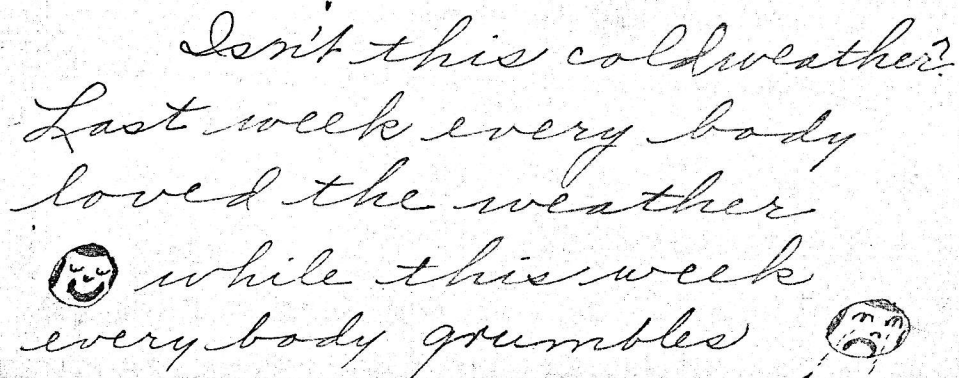 Isn't this cold weather?
Last week every body
loved the weather
while this week
every body grumbles